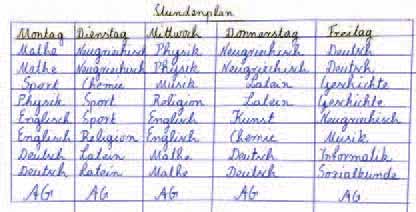 Stundenplan
Montag Dienstag Mittwoch Donnerstag Freitag
Mathe Neugriechisch Physik Neugriechisch Deutsch
Mathe Neugriechisch Physik Neugriechisch Deutsch
Sport Chemie Musik Latein Geschichte
Physik Sport Religion Latein Geschichte
Englisch Sport Englisch Kunst Neugriechisch
Englisch Religion Englisch Chemie Musik
Deutsch Latein Mathe Deutsch Informatik
Deutsch Latein Mathe Deutsch Sozialkunde
AG AG AG AG AG